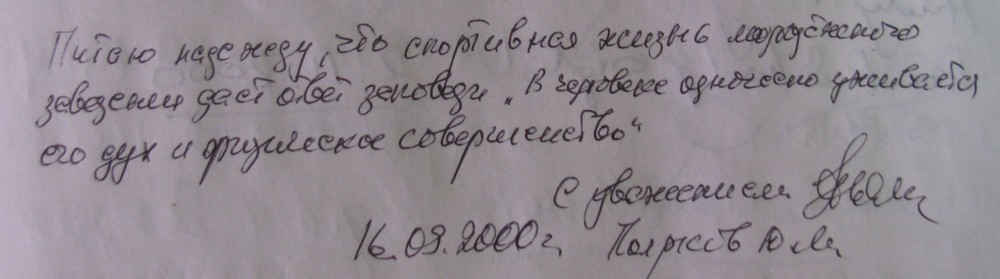 Питаю надежду, что спортивная жизнь
заведения даст ответ заповеди „В человеке одночасно уживается
его дух и физическое совершенство“
С уважением
16.09.2000г. Ю.М.